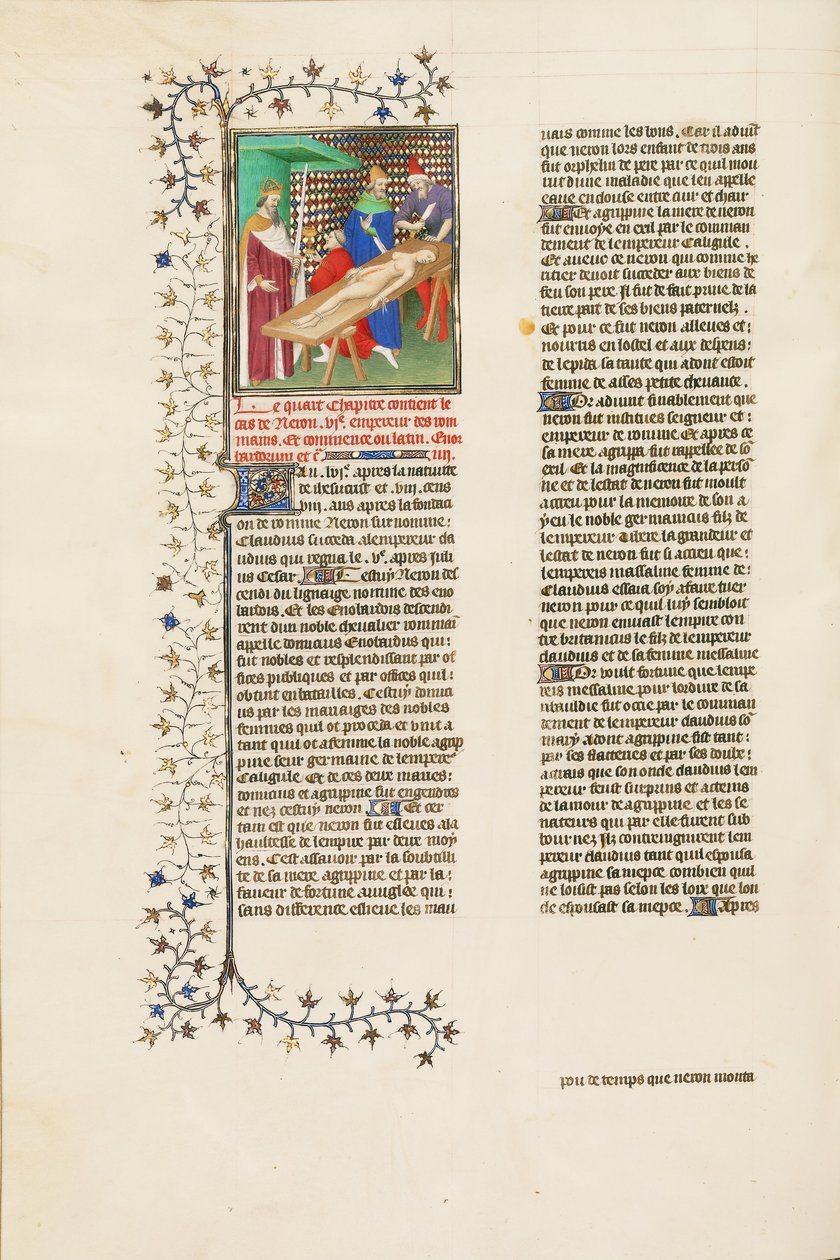 Le quart Chapitre contient le
cas de Neron .vje. empereur des rom
mains. Et commence ou latin. Enor
bardorum et c̃ iiij.
L an .lvje. apres la natiuite
de ihesucrist et .viij. cens
viij. ans apres la fondaci
on de romme Neron surnomme:
Claudius succeda alempereur cla
udius qui regna le .ve. apres juli
us Cesar. Cestuy Neron des
cendi du lignaige nomme des eno
bardois. Et les Enobardois descendi
rent dun noble cheualier rommaī
appelle domicius Enobardus qui:
fut nobles et resplendissant par of
fices publiques et par offices quil:
obtint en batailles. Cestuy domici
us par les mariaiges des nobles
femmes quil ot proceda et vint a
tant quil ot a femme la noble agrip
pine seur germaine de lempereʳ
Caligule. Et de ces deux mariez:
domicius et agrippine fut engendres
et nez cestuy neron. Et cer
tain est que neron fut esleues a la
haultesse de lempire par deux moy
ens. Cest assauoir par la soubtilli
te de sa mere agrippine et par la:
faueur de fortune auuglee qui:
sans difference eslieue les mau
uais comme les bons. Car il aduīt
que neron lors enfant de trois ans
fut orphelin de pere par ce quil mou
rut dune maladie que len appelle
eaue enclouse entre cuir et chair
Et agrippine la mere de neron
fut enuoye en exil par le comman
dement de lempereur Caligule.
Et auecques ce neron qui comme he
ritier deuoit succeder aux biens de
feu son pere. Il fut de fait priue de la
tierce part de ses biens paternelz.
Et pour ce fut neron alleues et:
nourris en lostel et aux despens:
de lepida sa tante qui adont estoit
femme de asses petite cheuance.
Or aduint finablement que
neron fut institues seigneur et:
empereur de romme. Et apres ce
sa mere agrippa fut rappellee de sō
exil. Et la magnificence de la persō
ne et de lestat de neron fut moult
accreu pour la memoire de son a
yeu le noble germanicus filz de
lempereur Tibere la grandeur et
lestat de neron fut si accreu que:
lempereis massaline femme de:
Claudius essaia soy a faire tuer
neron pour ce quil luy sembloit
que neron enuiast lempire con
tre britanicus le filz de lempereur
claudius et de sa femme messaline
Or voult fortune que lempe
reis messaline pour lordure de sa
ribauldie fut occie par le comman
dement de lempereur claudius sō
mary adont agrippine fist tant:
par ses flatteries et par ses doubz:
attrais que son oncle claudius lem
pereur feust surpuns et actains
de lamour de agrippine et les se
nateurs qui par elle furent sub
tournez. Ilz contreingnirent lem
pereur claudius tant quil espousa
agrippine sa niepce combien quil
ne loisist pas selon les loix que lon
cle espousast sa niepce. Apres
pou de temps que neron monta